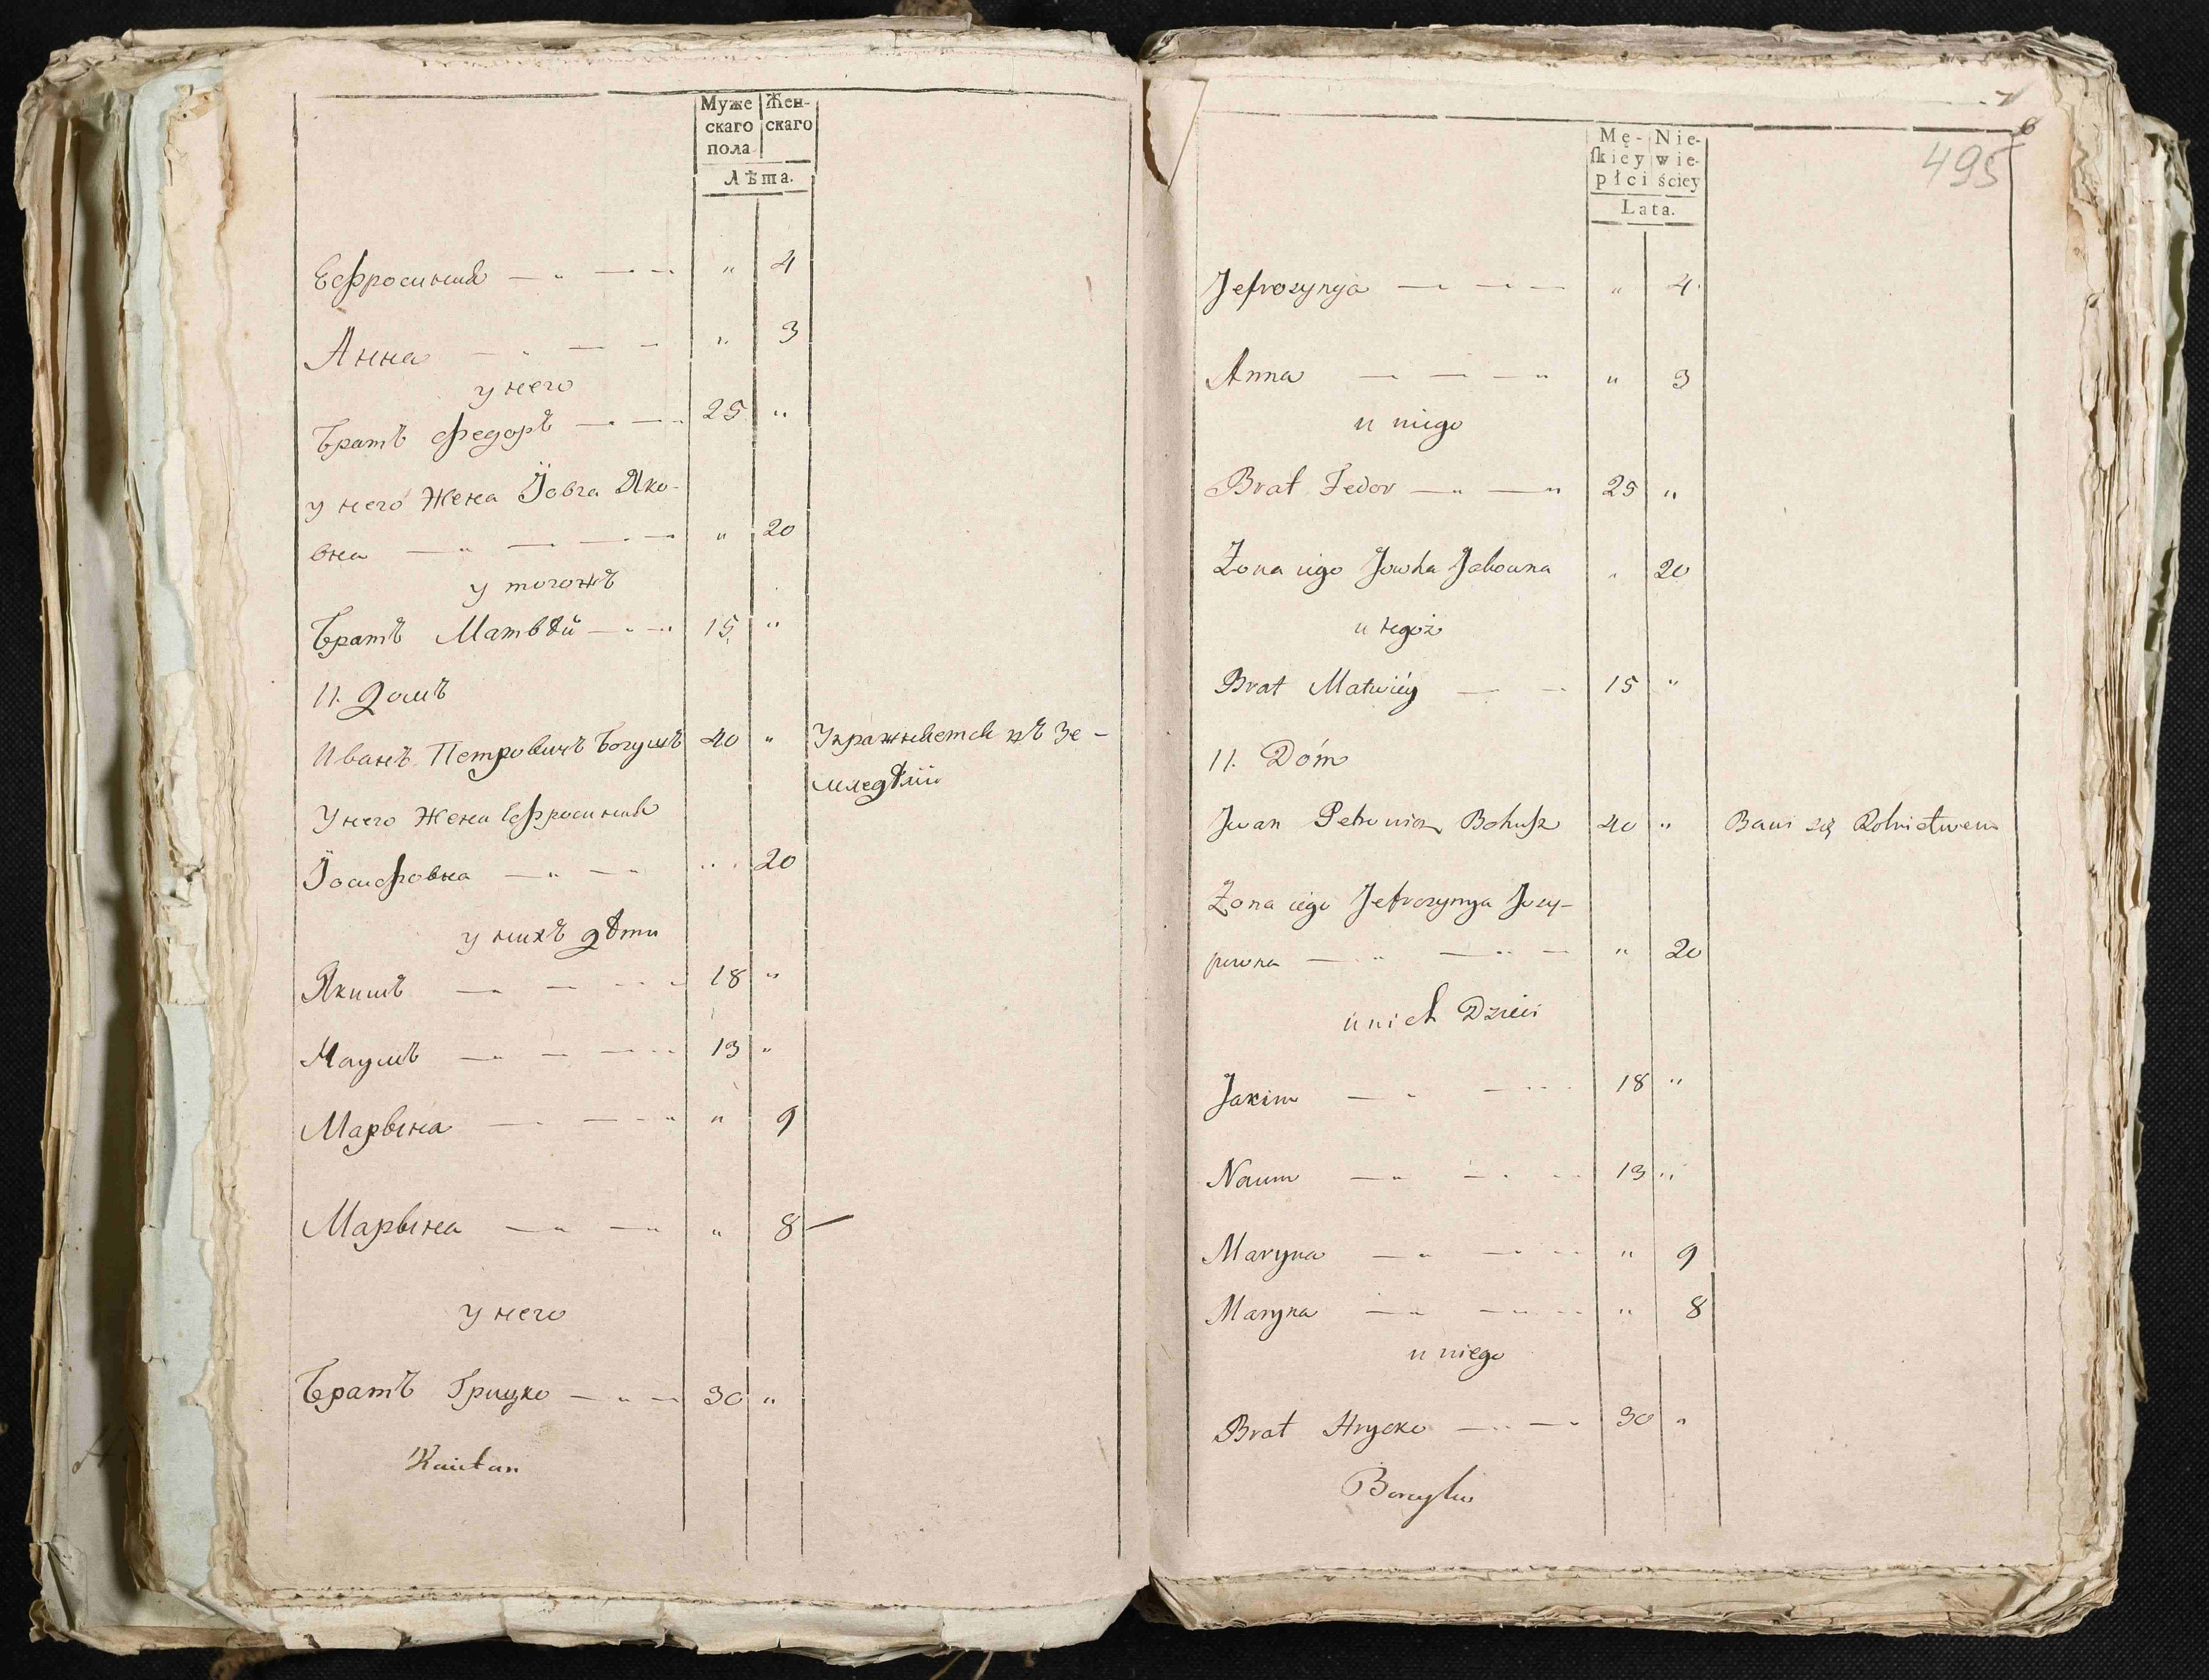 Муже Жен-
скаго скаго
пола
Лѣта.
Ефросинія " 4
Анна " 3
у него
Братъ Федоръ 25 "
у него Жена Іовга Яко-
вна " 20
у тогожъ
Братъ Матвѣй 15 "
11. Домъ
Иванъ Петровичъ Богушъ 40 " Упражняется къ Зе-
мледѣлію
У него Жена Ефросинія
Іосифовна " 20
у нихъ дѣти
Якимъ 18 "
Наумъ 13 "
Марына " 9
Марына " 8
у него
Братъ Грицко 30 "
Kaietan
7
6
495
Mę- Nie-
ſkiey wie-
płci ściey
Lata.
Jefrozynya " 4
Anna " 3
u niego
Brat Fedor 25 "
Żona iego Jowha Jakowna " 20
u tegoż
Brat Matwiey 15 "
11. Dóm
Jwan Petrowicz Bohusz 40 " Bawi się Rolnictwem
Żona iego Jefrozynya Jozy-
powna " 20
u nich Dzieci
Jakim 18 "
Naum 13 "
Maryna " 9
Maryna " 8
u niego
Brat Hrycko 30 "